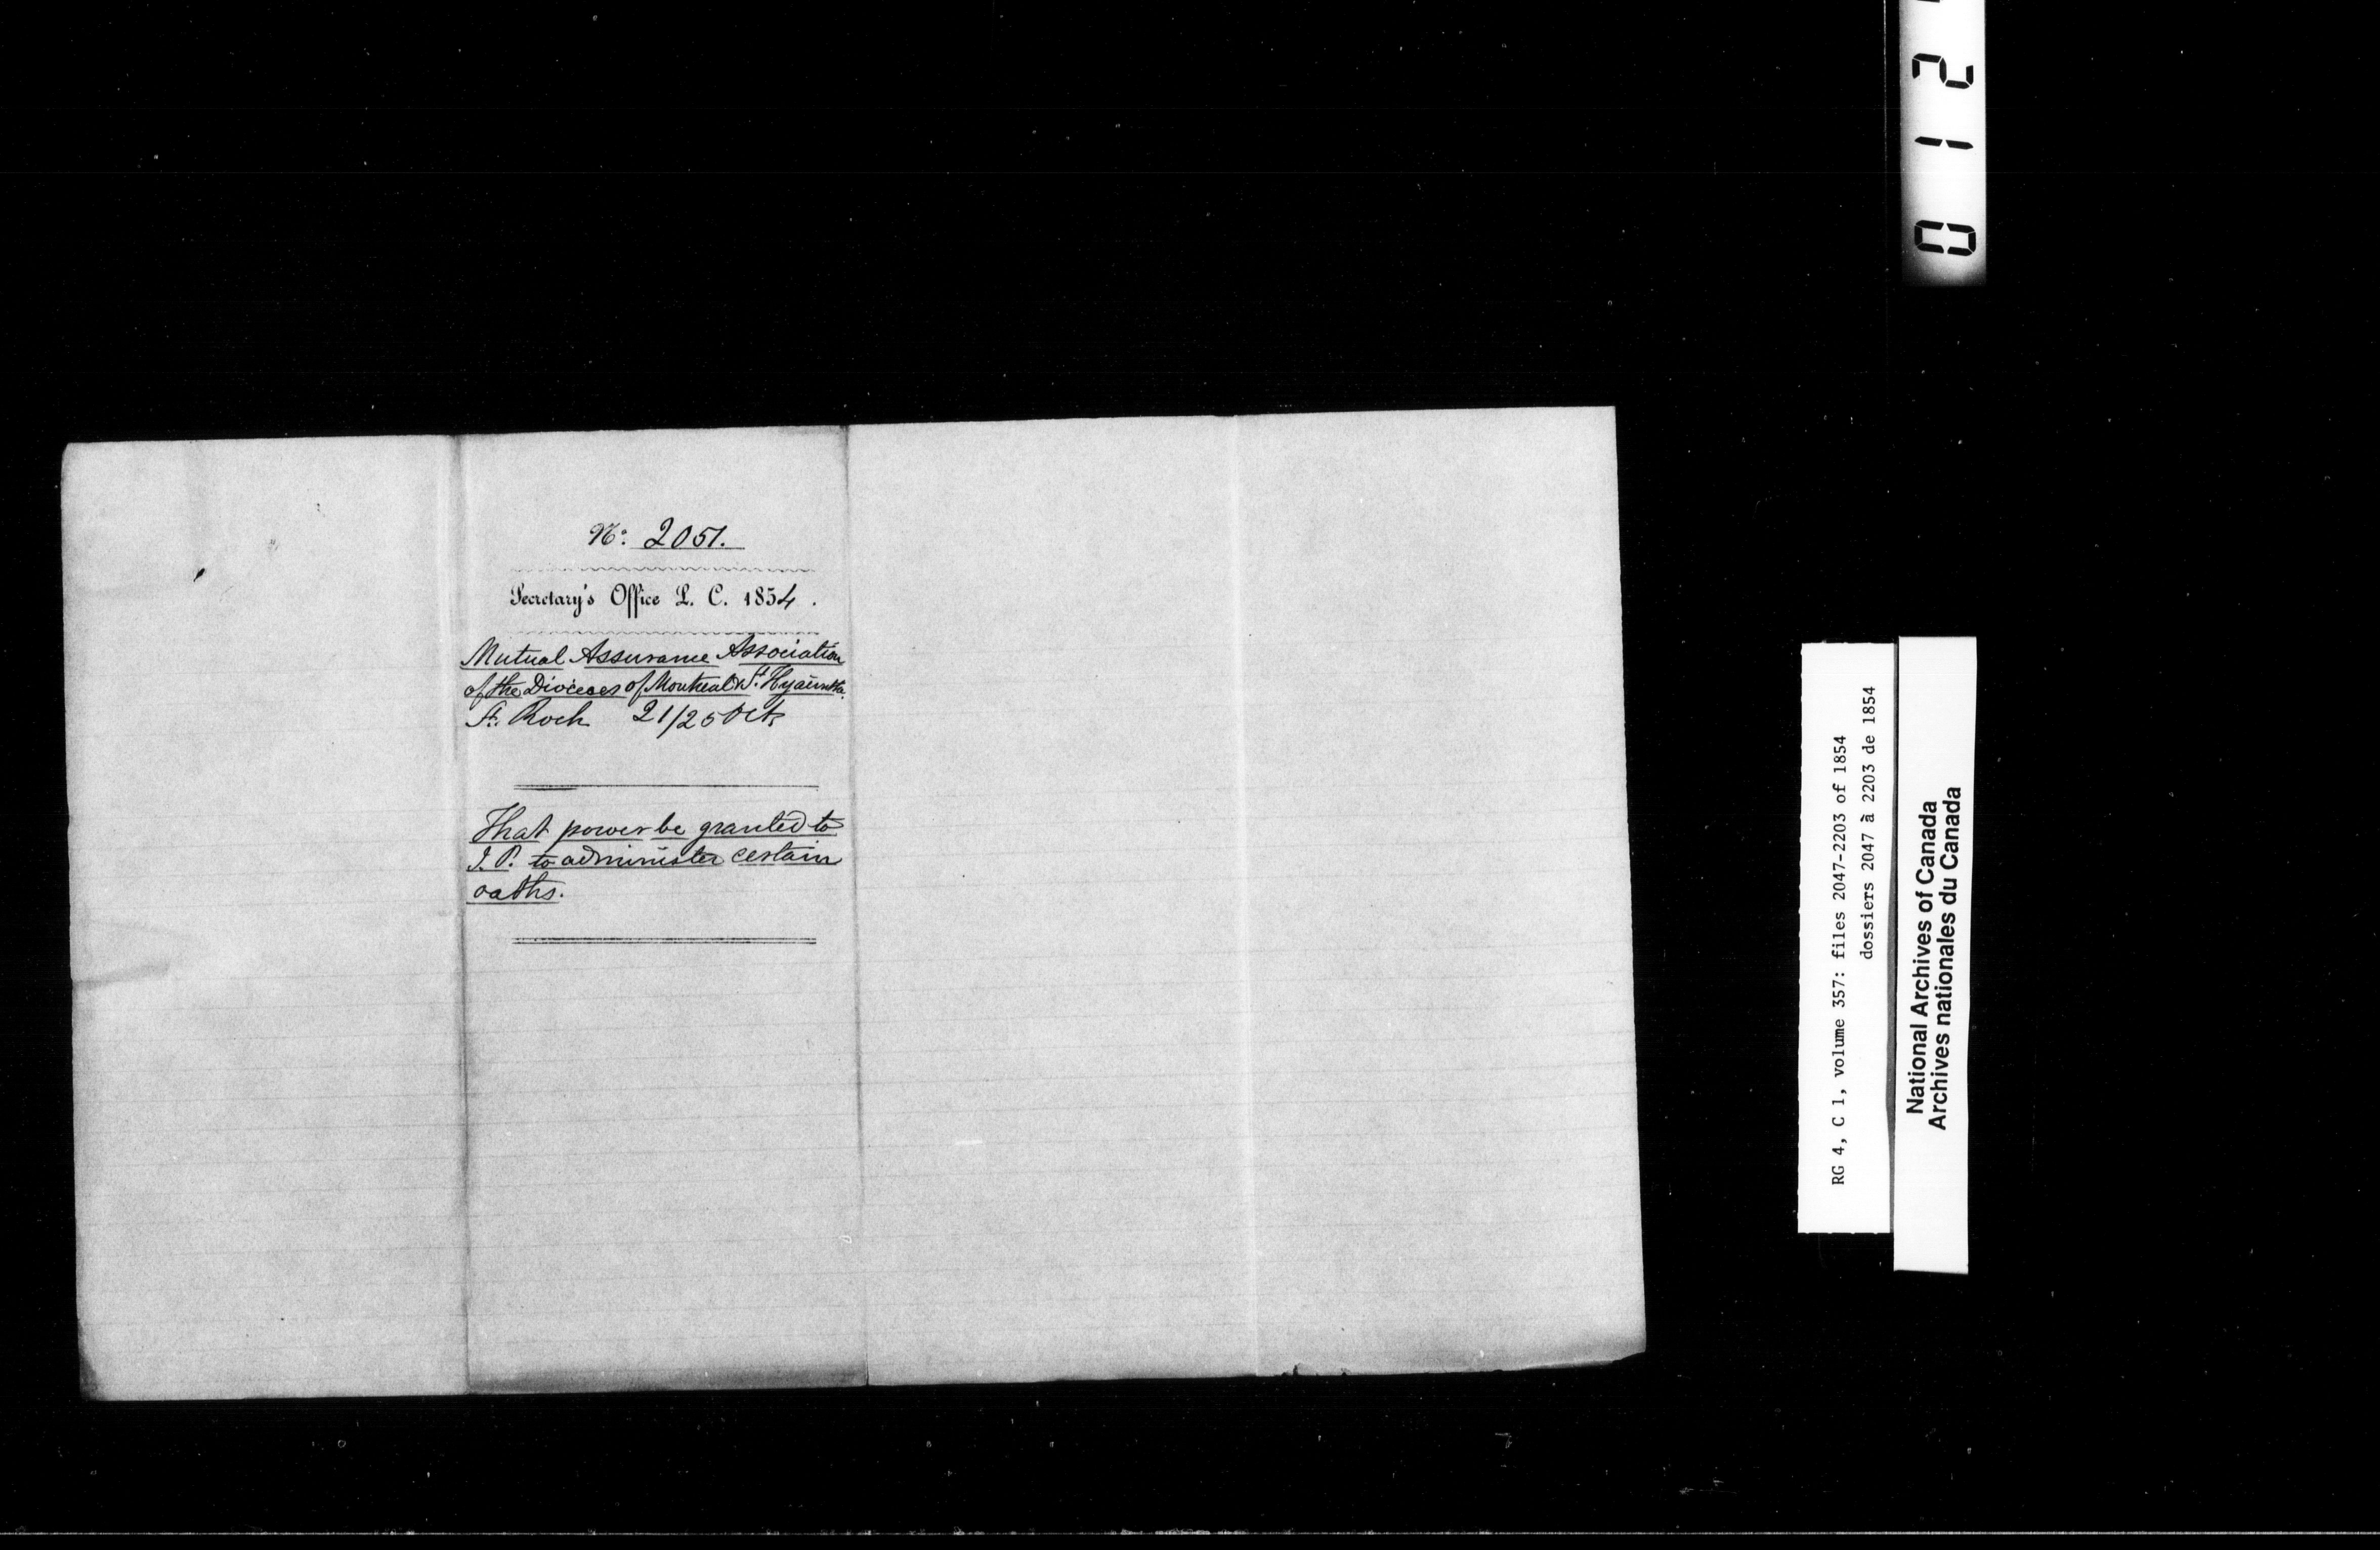 No. 2051.
Secretary's Office L. C. 1854.
Mutual Assurance Association
of the Dioceses of Montreal & St. Hyacinthe.
St. Roch 21/25 Oct.
That power be granted to
J. P. to administer certain
oaths.
0 1 2
RG 4, C 1, volume 357: files 2047-2203 of 1854
dossiers 2047 à 2203 de 1854
National Archives of Canada
Archives nationales du Canada